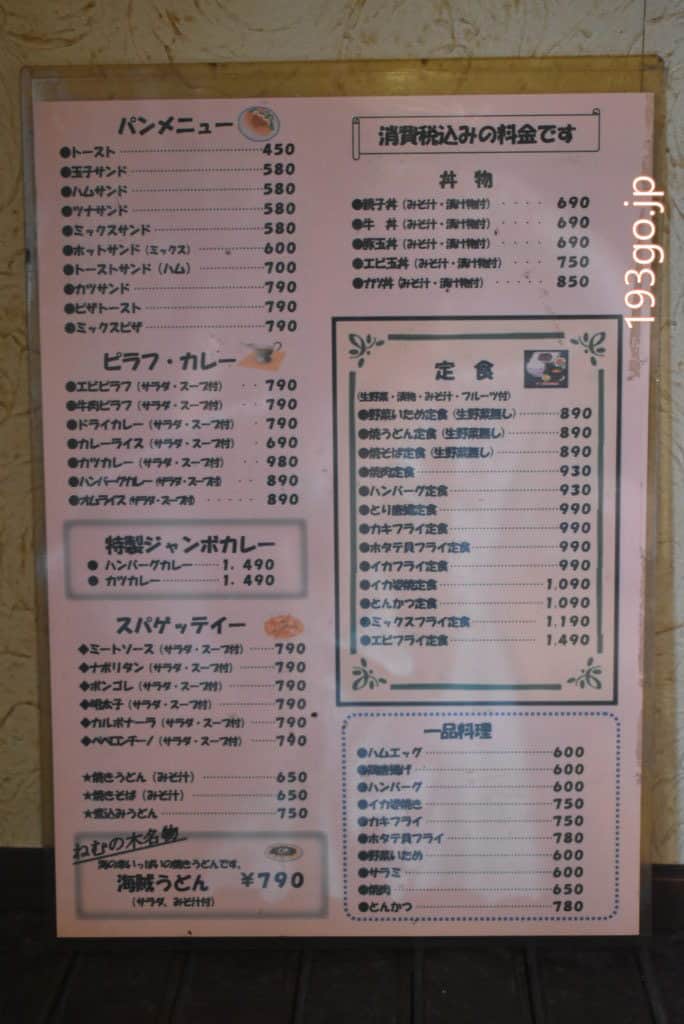 パンメニュー
●トースト 450
●玉子サンド 580
●ハムサンド 580
●ツナサンド 580
●ミックスサンド 580
●ホットサンド（ミックス） 600
●トーストサンド（ハム） 700
●カツサンド 790
●ピザトースト 790
●ミックスピザ 790
ピラフ・カレー
●エビピラフ（サラダ・スープ付） 790
●牛肉ピラフ（サラダ・スープ付） 790
●ドライカレー（サラダ・スープ付） 790
●カレーライス（サラダ・スープ付） 690
●カツカレー（サラダ・スープ付） 980
●ハンバーグカレー（サラダ・スープ付） 890
●オムライス（サラダ・スープ付） 890
特製ジャンボカレー
● ハンバーグカレー 1,490
● カツカレー 1,490
スパゲッテイー
◆ミートソース（サラダ・スープ付） 790
◆ナポリタン（サラダ・スープ付） 790
◆ボンゴレ（サラダ・スープ付） 790
◆明太子（サラダ・スープ付） 790
◆カルボナーラ（サラダ・スープ付） 790
◆ペペロンチーノ（サラダ・スープ付） 790
★焼きうどん（みそ汁） 650
★焼きそば（みそ汁） 650
★煮込みうどん 750
ねむの木名物
海の幸いっぱいの焼きうどんです。
海賊うどん ￥790
（サラダ、みそ汁付）
消費税込みの料金です
丼 物
●親子丼（みそ汁・漬け物付） 690
●牛 丼（みそ汁・漬け物付） 690
●豚玉丼（みそ汁・漬け物付） 690
●エビ玉丼（みそ汁・漬け物付） 750
●カツ丼（みそ汁・漬け物付） 850
定 食
（生野菜・漬物・みそ汁・フルーツ付）
●野菜いため定食（生野菜無し） 890
●焼うどん定食（生野菜無し） 890
●焼そば定食（生野菜無し） 890
●焼肉定食 930
●ハンバーグ定食 930
●とり唐揚定食 990
●カキフライ定食 990
●ホタテ貝フライ定食 990
●イカフライ定食 990
●イカ姿焼定食 1,090
●とんかつ定食 1,090
●ミックスフライ定食 1,190
●エビフライ定食 1,490
一品料理
●ハムエッグ 600
●鶏唐揚げ 600
●ハンバーグ 600
●イカ姿焼き 750
●カキフライ 750
●ホタテ貝フライ 780
●野菜いため 600
●サラミ 600
●焼肉 650
●とんかつ 780
193go.jp